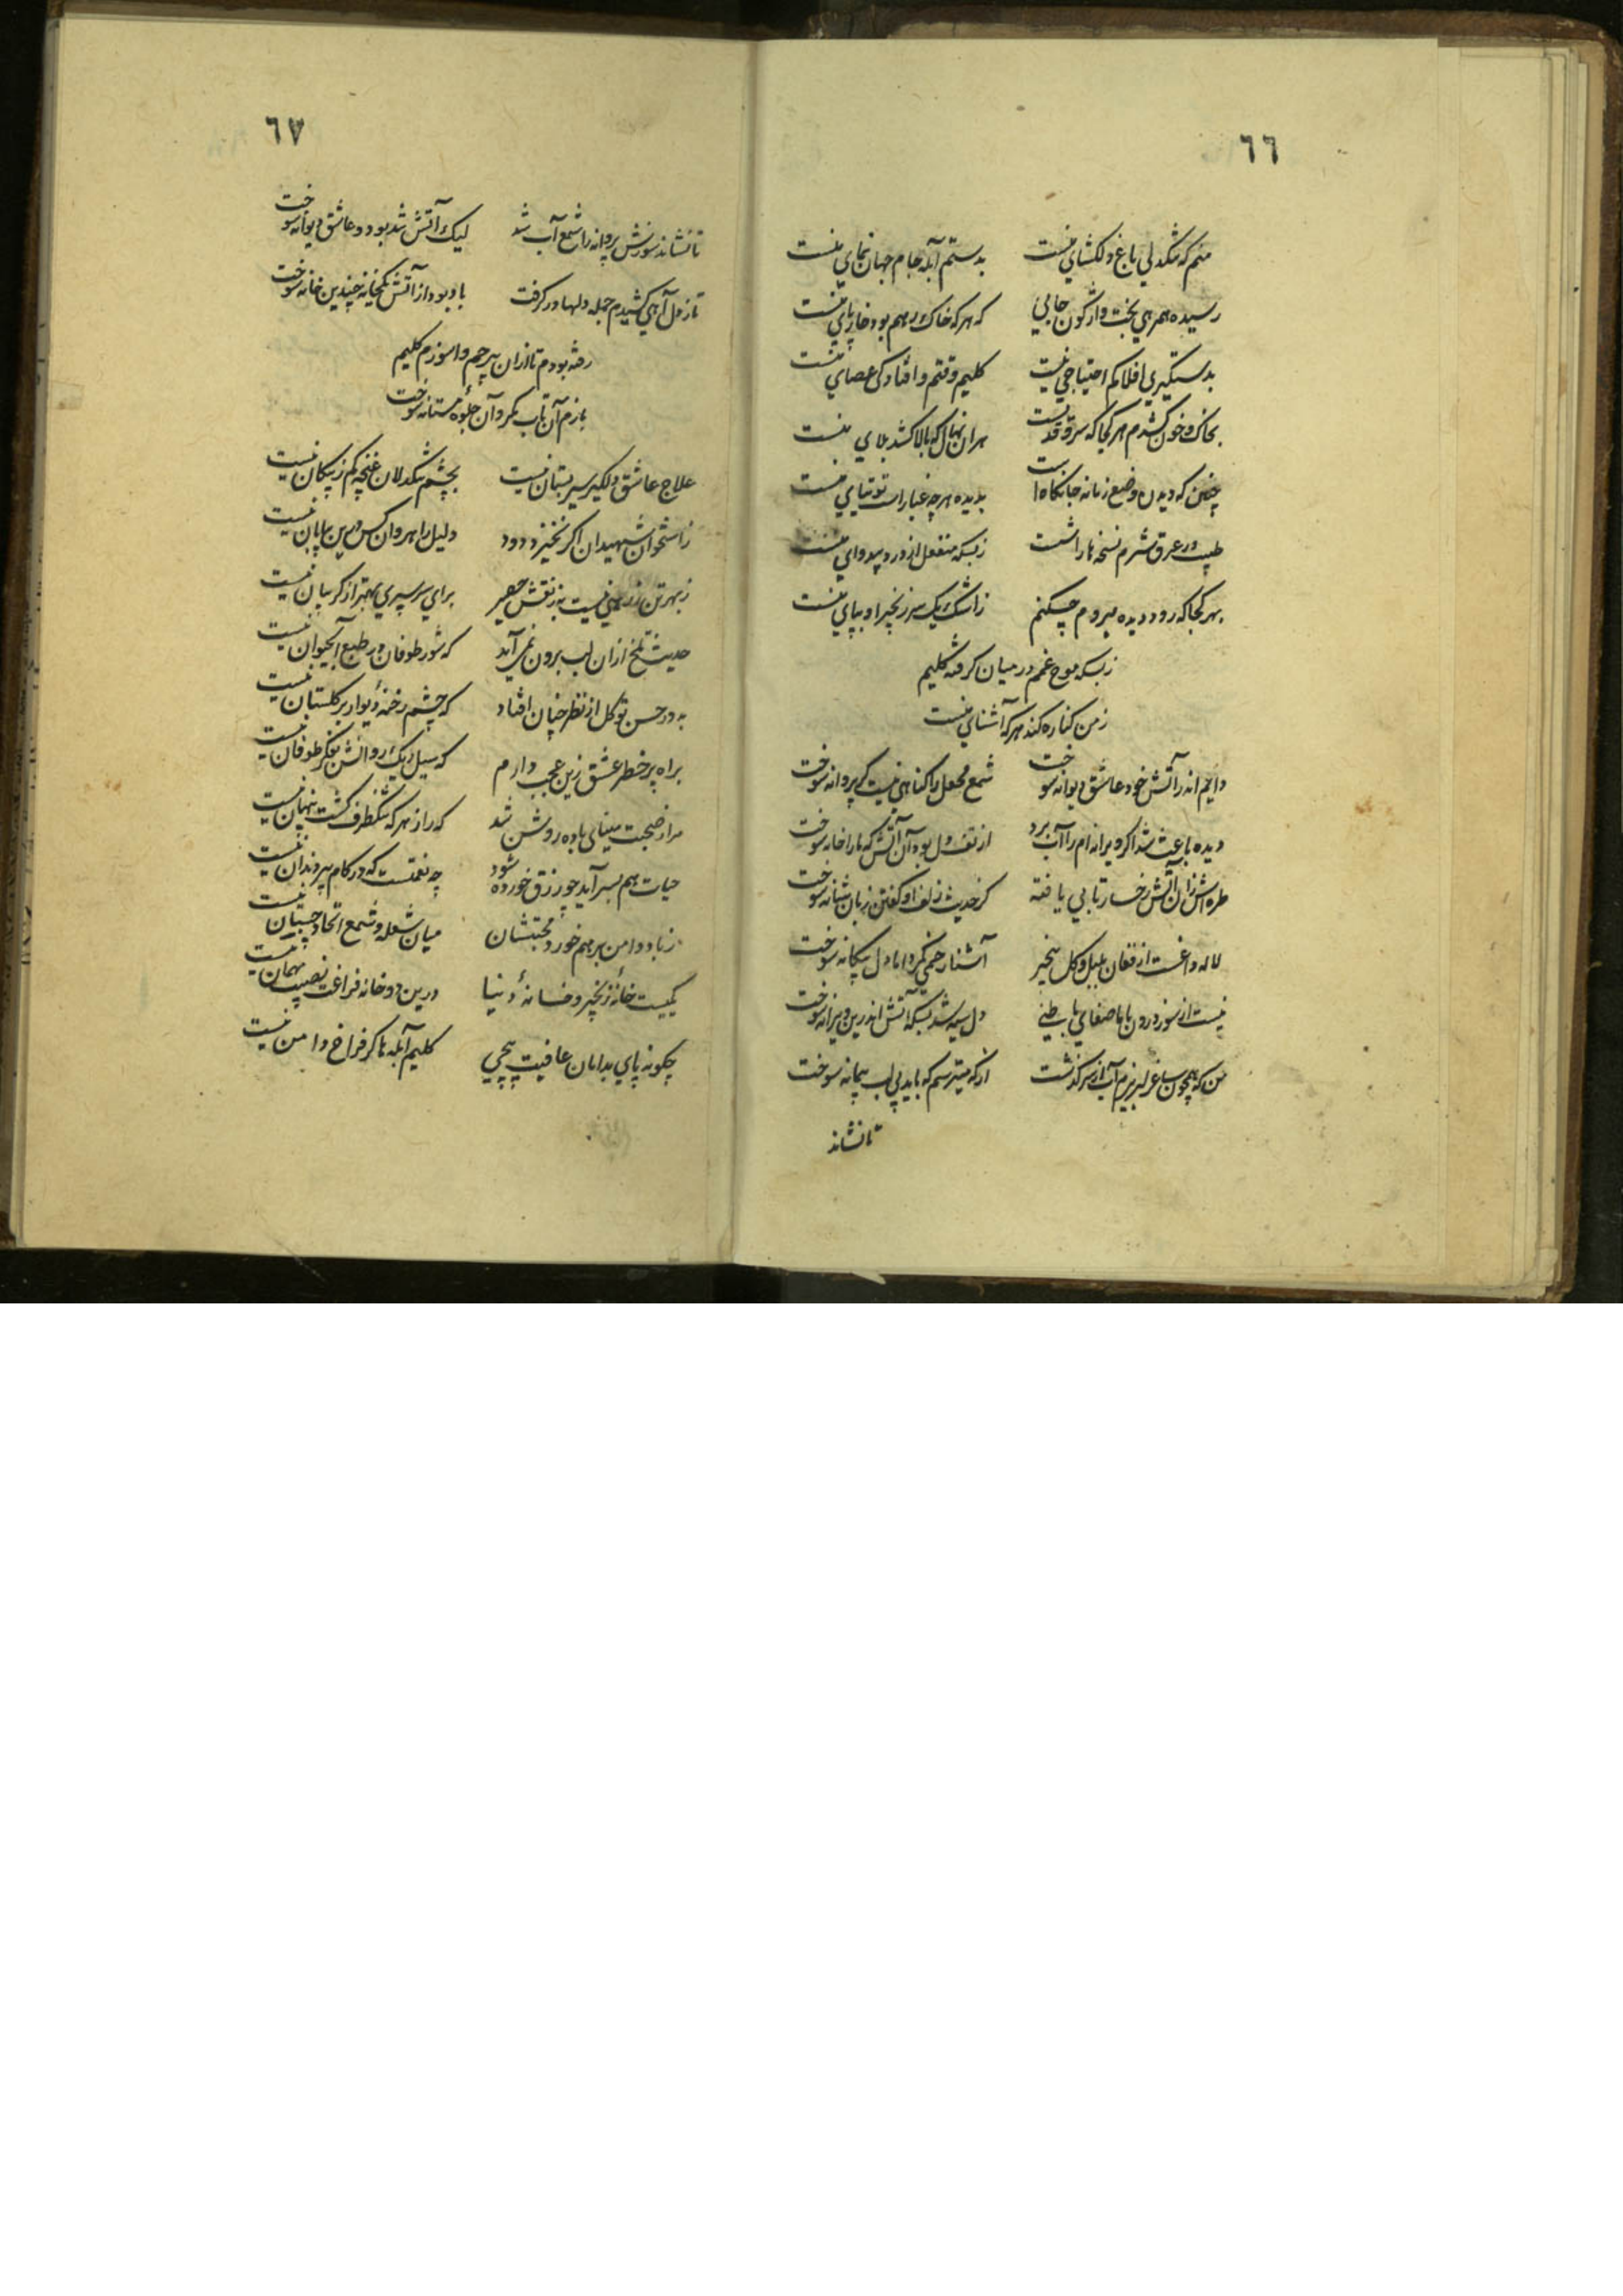 ٦٦
منم که تنگدلی باغ دلکشای منست    بدستم آبله جام جهان نمای منست
رسیده همرهی بخت واژگون جایی    که هر که خاک رهم بود خار پای منست
بدستگیری افلاکم احتیاجی نیست    کلیم وقتم و افتادگی عصای منست
بخاک و خون کشدم هر کجا که سرو قدیست    هران نهال که بالا کشد بلای منست
چنین که دیدن وضع زمانه جانکاه است    بدیده هر چه غبار است توتیای منست
طبیب در عرق شرم نسخه ها را شست    زبسکه منفعل از درد بیدوای منست
بهر کجا که رود دیده میروم چکنم    ز اشک یک سر زنجیر او بپای منست
زبسکه موج غمم در میان گرفته کلیم
ز من کناره کند هر که آشنای منست
دایم انه را آتش خود عاشق دیوانه سوخت    شمع محفل را گناهی نیست گر پروانه سوخت
دیده باعث شد اگر ویرانه ام را آب برد    از تف دل بود آن آتش که ما را خانه سوخت
طره اش زان آتش رخسار تابی یافته    کز حدیث زلف او گفتن زبان شانه سوخت
لاله داغست از فغان بلبل و گل بیخبر    آشنا رحمی نکرد اما دل بیگانه سوخت
نیست از سوز درون با ما صفای باطنی    دل سیه شد بسکه آتش اندرین ویرانه سوخت
من که همچون ساغر لبریزم آب از سر گذشت    از که میترسم که باید بی لب پیمانه سوخت
تا نشاند
٦٧
تا نشاند سوزش پروانه را شمع آب شد    لیک آتش شد بود و عاشق دیوانه سوخت
تا ز دل آهی کشیدم جمله دلها در گرفت    باد بود از آتش یکخانه چندین خانه سوخت
رفته بودم تا ازان بیرحم واسوزم کلیم
بازم آن تاب کمر وآن جلوه مستانه سوخت
علاج عاشق دلگیر سیر بستان نیست    بچشم تنگدلان غنچه کم ز پیکان نیست
ز استخوان شهیدان اگر نخیزد دود    دلیل راهروان کس درین بیابان نیست
ز بهر تن زرهی نیست به ز نقش حصیر    برای سر سپری بهتر از گریبان نیست
حدیث تلخ ازان لب برون نمی آید    که شور طوفان در طبع آبحیوان نیست
به دور حسن تو گل از نظر چنان افتاد    که چشم رخنهٔ دیوار بر گلستان نیست
براه پر خطر عشق زین عجب دارم    که سیل ریک روانش بفکر طوفان نیست
مرا ز صحبت مینای باده روشن شد    که راز هر که تنکظرف گشت پنهان نیست
حیات هم بسر آید چو رزق خورده شود    چه نعمتست که در کام پیر دندان نیست
ز باد دامن بر هم خورد محبتشان    میان شعله و شمع اتحاد چسبان نیست
یکیست خانهٔ زنجیر و خانهٔ دنیا    درین دو خانه فراغت نصیب مهمان نیست
چگونه پای بدامان عافیت پیچی    کلیم آبله ها گر فراخ دامن نیست